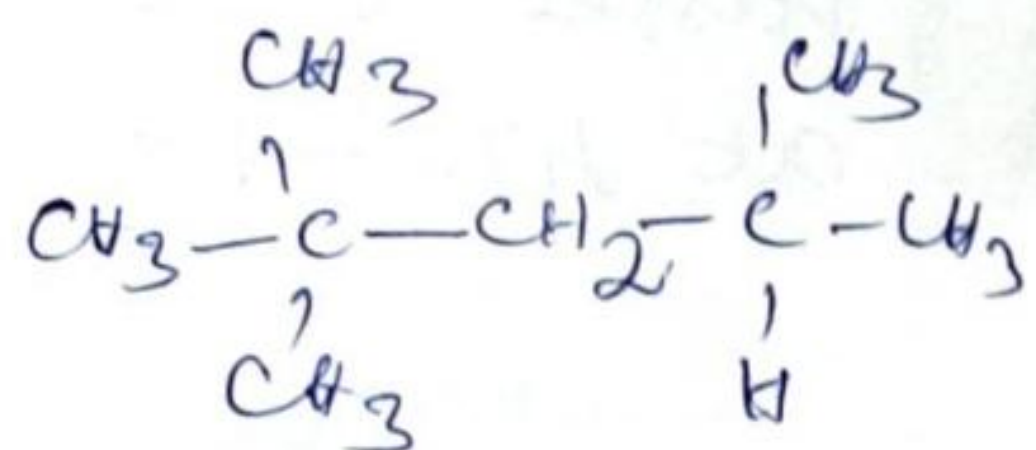 CH3 CH3
CH3 — C — CH2 — C — CH3
CH3 H